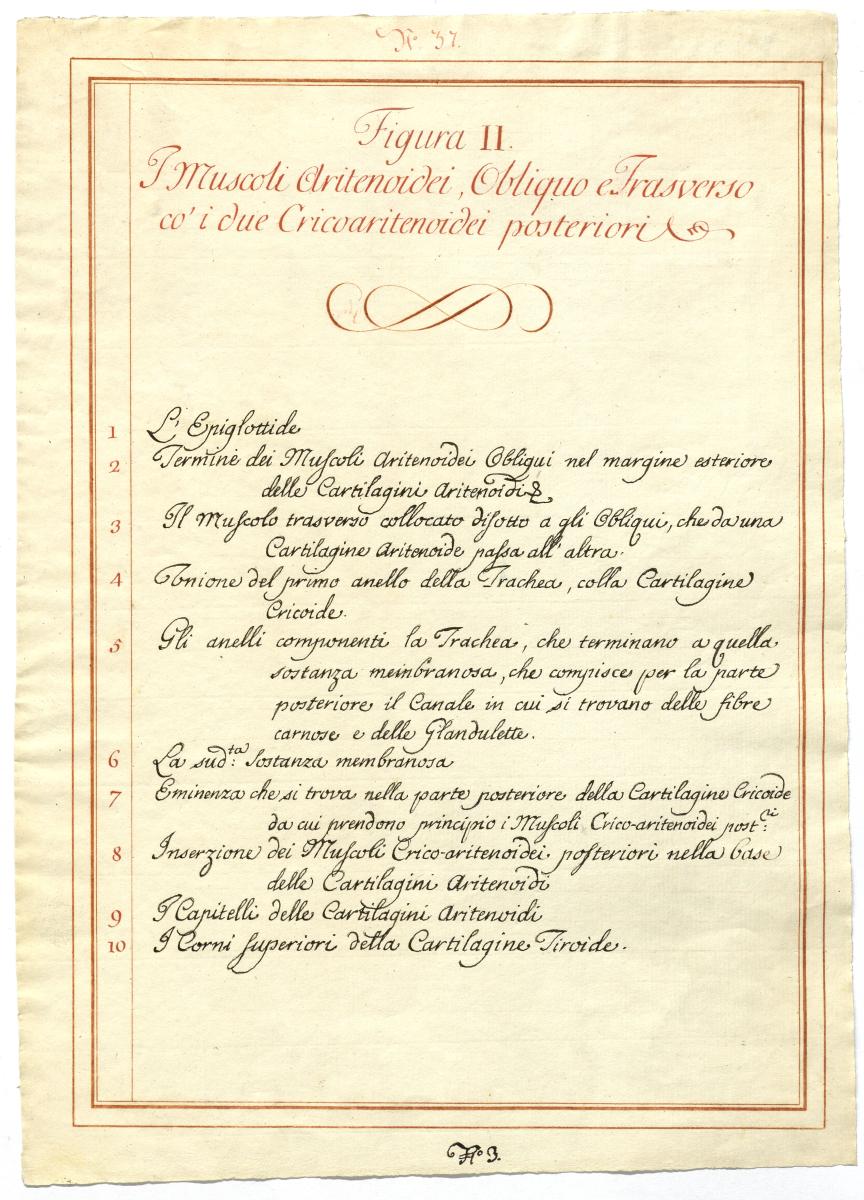 N.º 37.
Figura II.
I Muscoli Aritenoidei, Obliquo e Trasverso
co' i due Cricoaritenoidei posteriori
1 L' Epiglottide
2 Termine dei Muſcoli Aritenoidei Obliqui nel margine esteriore
delle Cartilagini Aritenoidi
3 Il Muscolo trasverso collocato diſotto a gli Obliqui, che da una
Cartilagine Aritenoide paſsa all' altra.
4 Unione del primo anello della Trachea, colla Cartilagine
Cricoide.
5 Gli anelli componenti la Trachea, che terminano a quella
sostanza membranosa, che compisce per la parte
posteriore il Canale in cui si trovano delle fibre
carnose e delle Glandulette.
6 La sud.ta Sostanza membranosa
7 Eminenza che si trova nella parte posteriore della Cartilagine Cricoide
da cui prendono principio i Muſcoli Crico-aritenoidei post.ri
8 Inserzione dei Muſcoli Crico-aritenoidei poſteriori nella base
delle Cartilagini Aritenoidi
9 I Capitelli delle Cartilagini Aritenoidi
10 I Corni ſuperiori della Cartilagine Tiroide.
N.º 3.